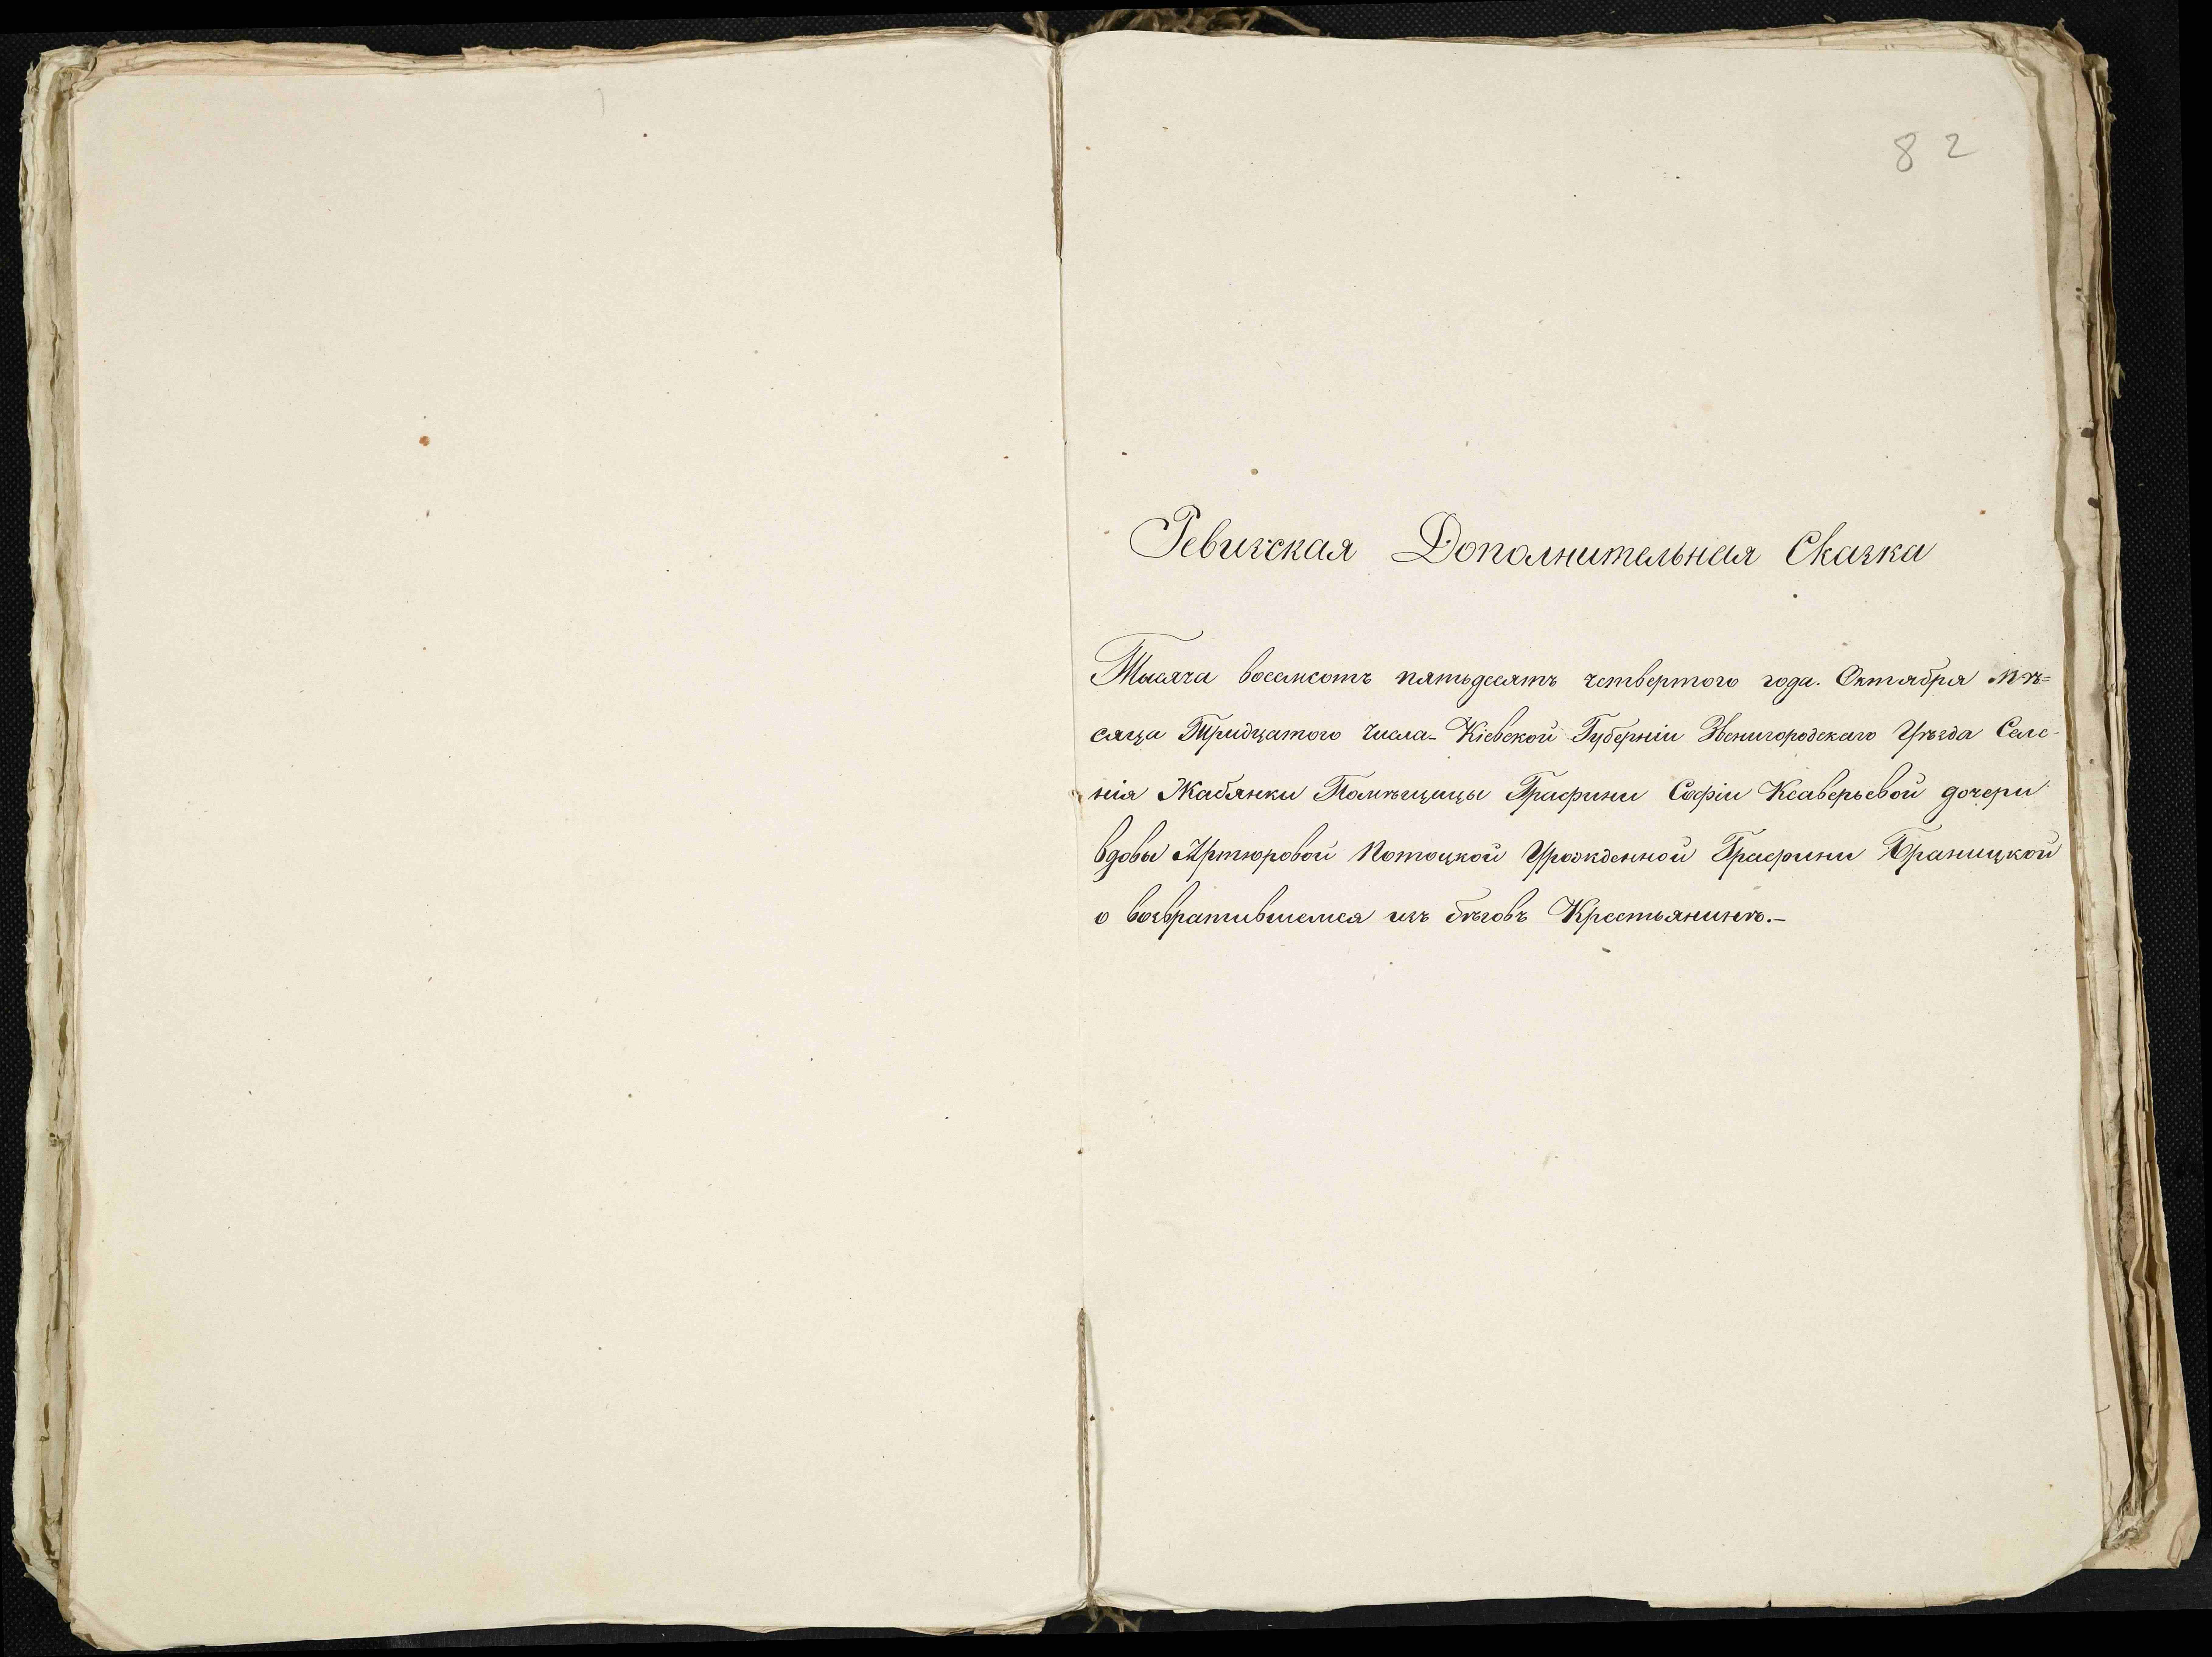 82
Ревизская Дополнительная Сказка
Тысяча восемсотъ пятьдесятъ четвертого года. Октября мѣ=
сяца Тридцатого числа - Кіевской Губерніи Звенигородскаго Уѣзда Селе-
нія Жабянки Помѣщицы Графини Софіи Ксаверьевой дочери
вдовы Артюровой Потоцкой Урожденной Графини Браницкой
о возвратившемся изъ бѣговъ Крестьянинѣ.-